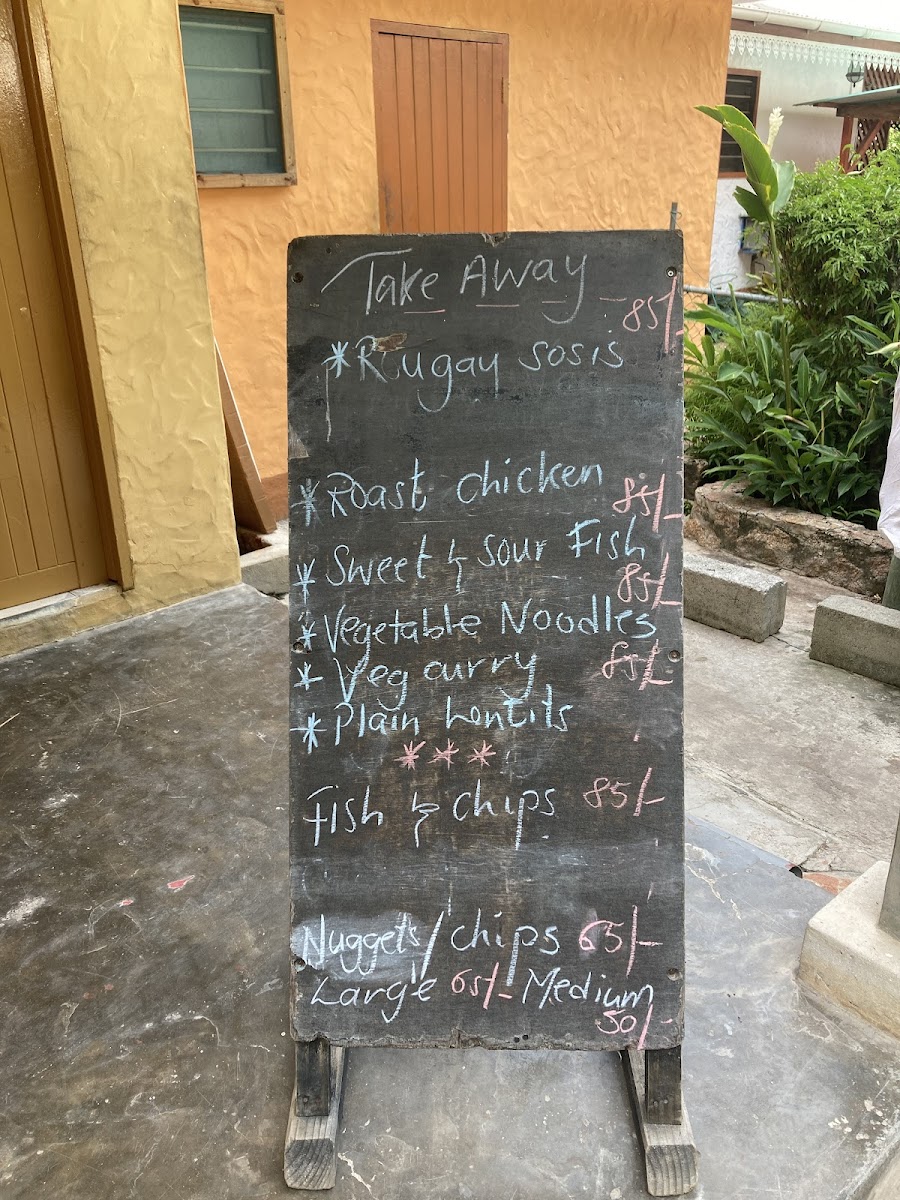 Take Away
85/-
*Rugay sosis
*Roast chicken
85/-
*Sweet & Sour Fish
85/-
*Vegetable Noodles
*Veg curry 85/-
*Plain Lentils
***
Fish & Chips 85/-
Nuggets/chips 65/-
Large 65/- Medium
50/-